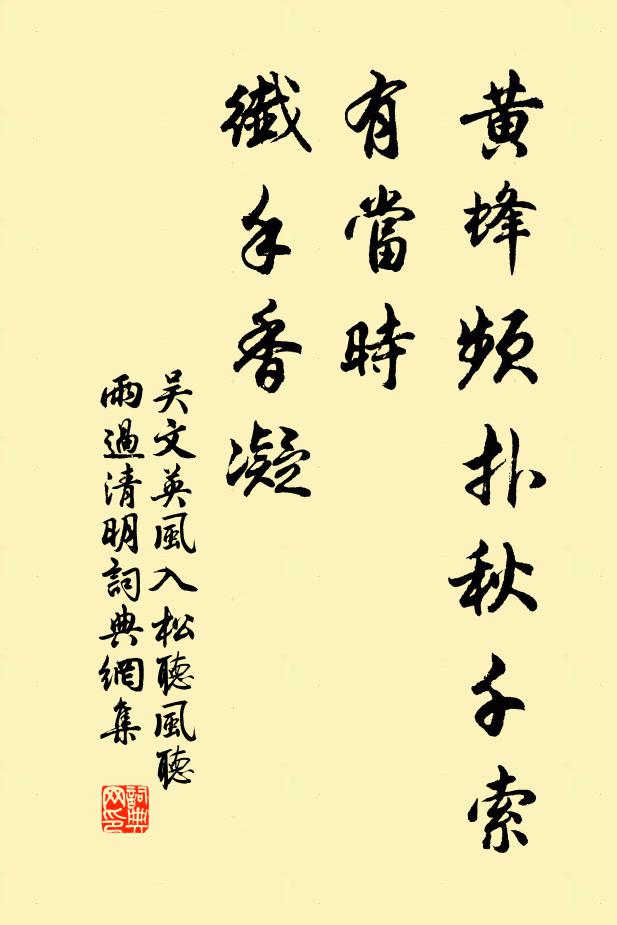 黄蜂频扑秋千索
有當時
纖手香凝
吴文英風入松聽風聽
雨過清明詞典網集
詞典
网印